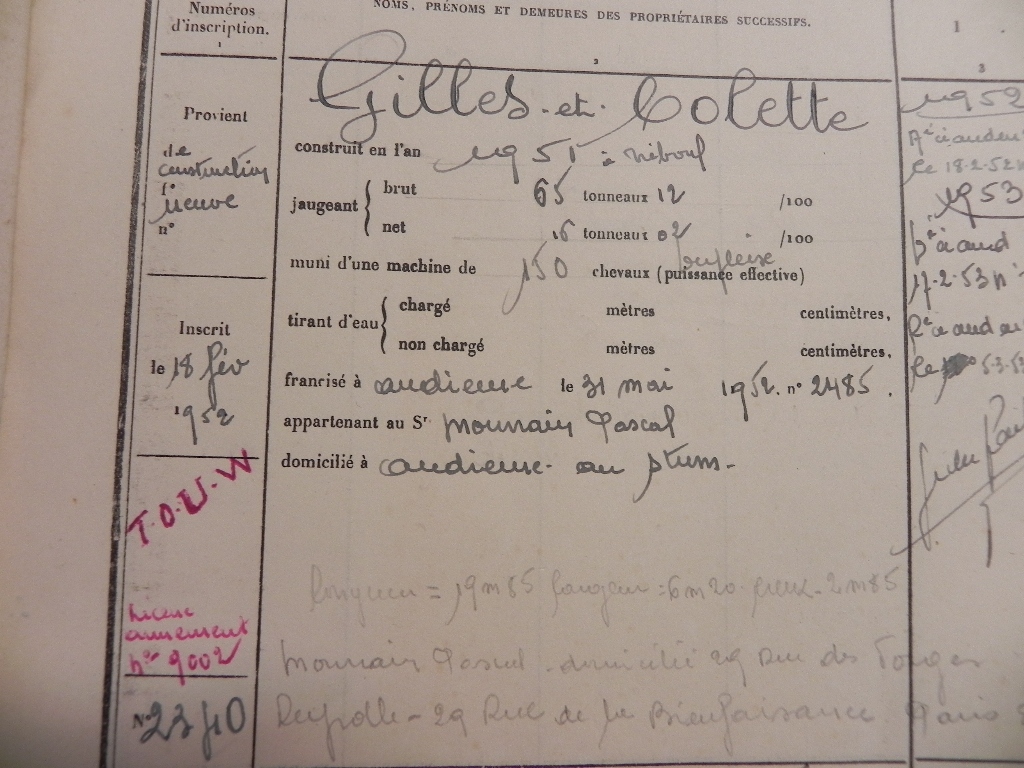 Numéros
d'inscription.
1
NOMS, PRÉNOMS ET DEMEURES DES PROPRIÉTAIRES SUCCESSIFS.
2
1
3
Provient
de
construction
neuve
n°
Inscrit
le 18 fév
1952
T.O.U-W
license
armement
n° 9002
N° 2340
Gilles - et - Colette
construit en l'an 1951 à
jaugeant { brut 65 tonneaux 12 /100
net 16 tonneaux 02 /100
muni d'une machine de 150 chevaux (puissance effective)
tirant d'eau { chargé mètres centimètres,
non chargé mètres centimètres,
francisé à audierne le 31 mai 1952. n° 2485.
appartenant au Sr Pascal
domicilié à audierne -
longueur = 19m85 largeur = 6m20 - creux - 2m85
Pascal - domicilié 29 Rue des
29 Rue de la Bienfaisance Paris
1952
le 18-2-52
1953
17-2-53 n°